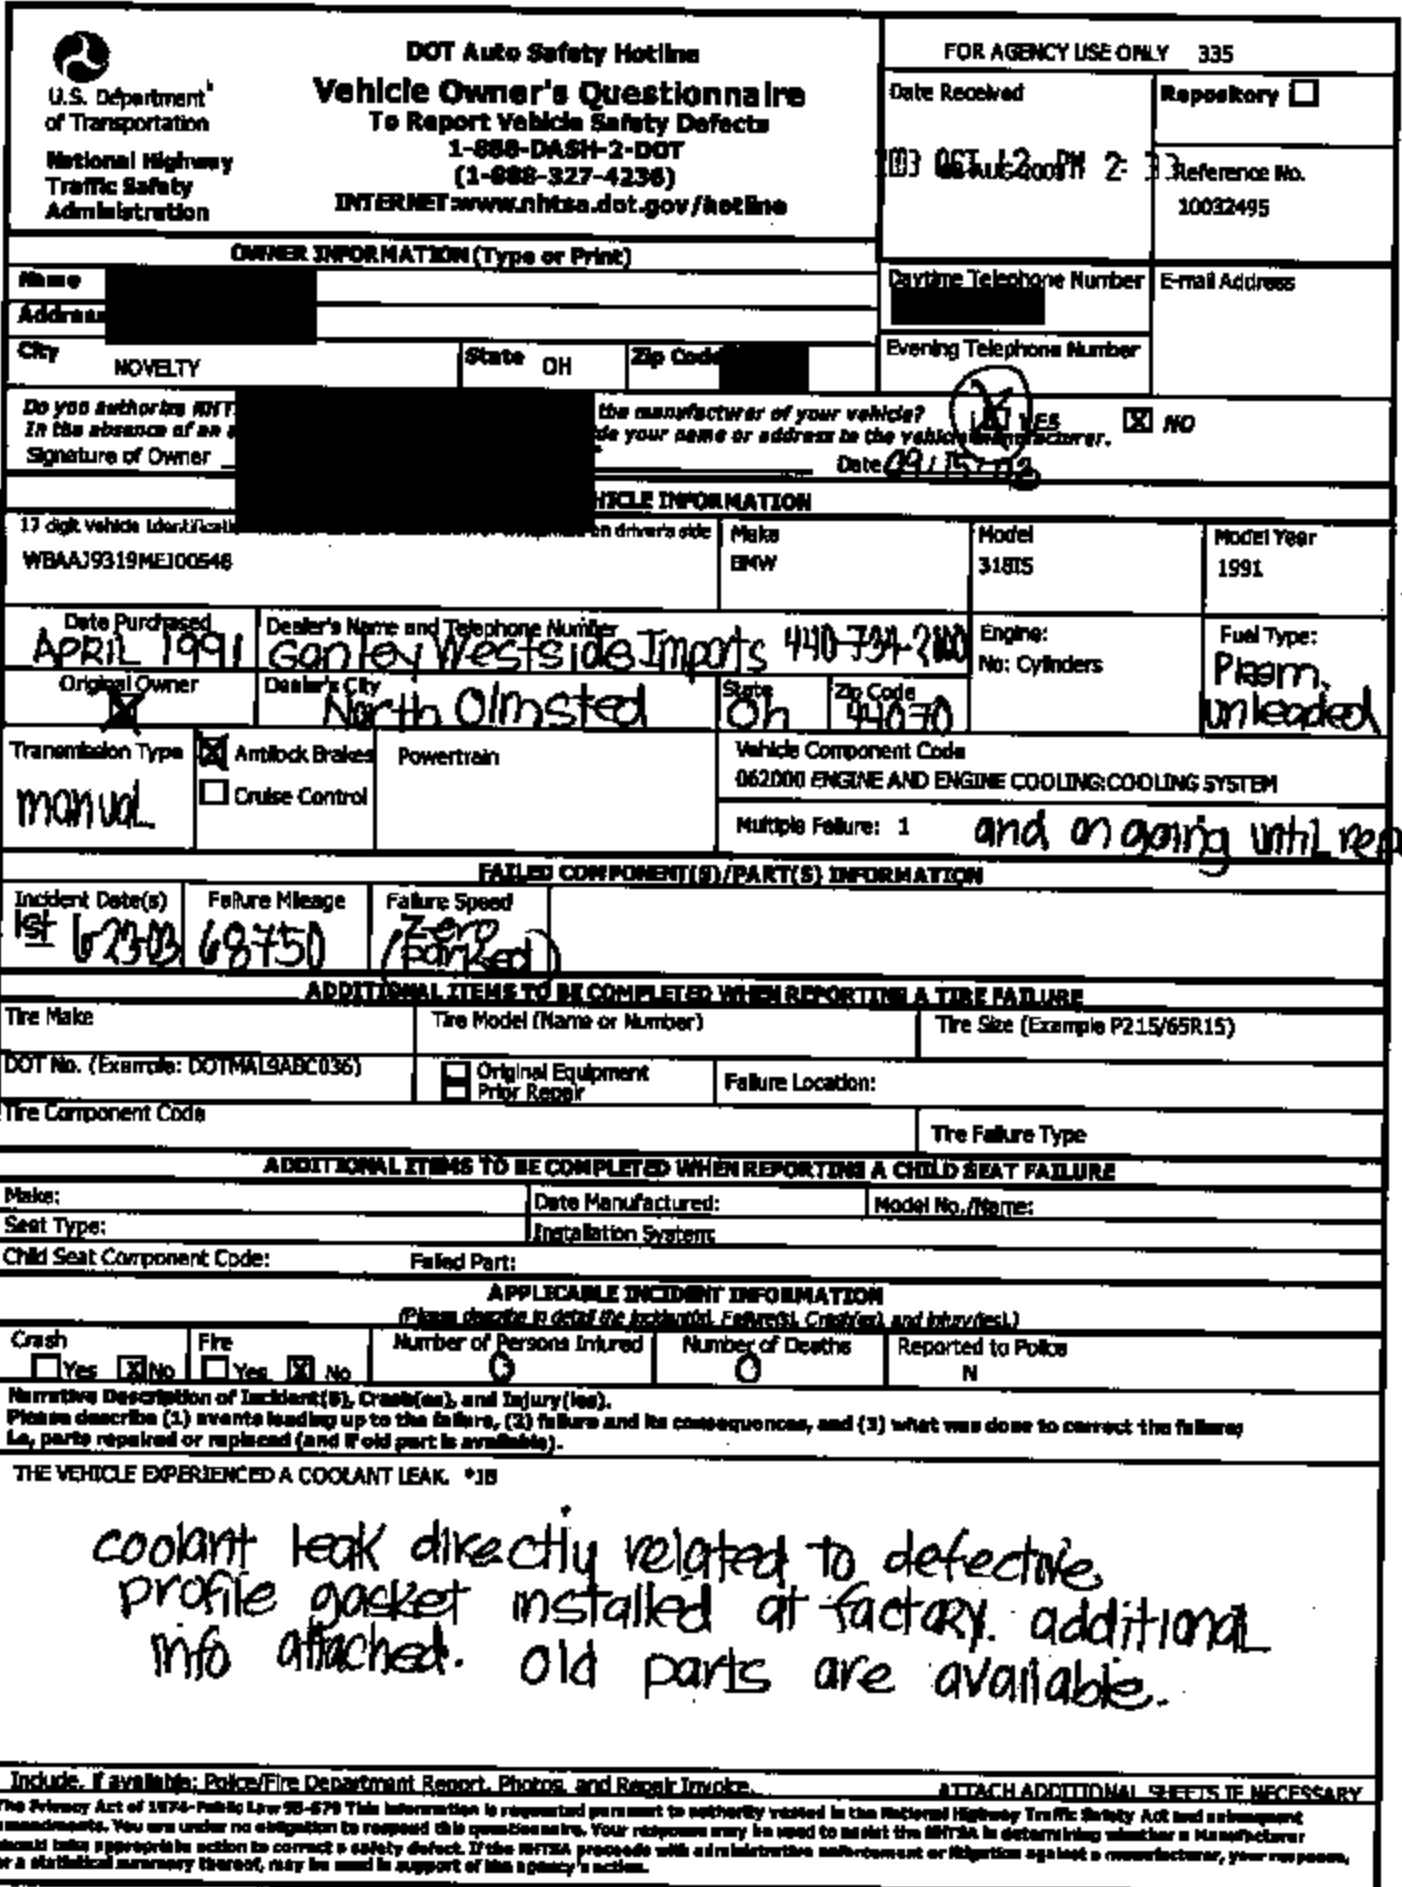 DOT Auto Safety Hotline
Vehicle Owner's Questionnaire
To Report Vehicle Safety Defects
1-888-DASH-2-DOT
(1-888-327-4236)
INTERNET:www.nhtsa.dot.gov/hotline
U.S. Department
of Transportation
National Highway
Traffic Safety
Administration
FOR AGENCY USE ONLY 335
Date Received
Repository
2003 OCT 12 PM 2: 33
Reference No.
10032495
OWNER INFORMATION (Type or Print)
Name
Address
Daytime Telephone Number
E-mail Address
City NOVELTY
State OH
Zip Code
Evening Telephone Number
Do you authorize the manufacturer of your vehicle? YES X NO
In the absence of an your name or address to the vehicle manufacturer.
Signature of Owner
Date 09/15/
INFORMATION
17 digit Vehicle on driver's side
WBAAJ9319MEJ00548
Make
BMW
Model
318IS
Model Year
1991
Date Purchased
APRIL 1991
Dealer's Name and Telephone Number
Ganley Westside Imports 440-734-2000
Engine:
No: Cylinders
Fuel Type:
unleaded
Original Owner
X
Dealer's City
North Olmsted
State
Oh
Zip Code
44070
Transmission Type
manual
X Antilock Brakes
Cruise Control
Powertrain
Vehicle Component Code
062000 ENGINE AND ENGINE COOLING:COOLING SYSTEM
Multiple Failure: 1 and on going until
FAILED COMPONENT(S)/PART(S) INFORMATION
Incident Date(s)
1st 6-23-03
Failure Mileage
68750
Failure Speed
Zero
(parked)
ADDITIONAL ITEMS TO BE COMPLETED WHEN REPORTING A TIRE FAILURE
Tire Make
Tire Model (Name or Number)
Tire Size (Example P215/65R15)
DOT No. (Example: DOTMAL9ABC036)
Original Equipment
Prior Repair
Failure Location:
Tire Component Code
Tire Failure Type
ADDITIONAL ITEMS TO BE COMPLETED WHEN REPORTING A CHILD SEAT FAILURE
Make:
Date Manufactured:
Model No./Name:
Seat Type:
Installation System:
Child Seat Component Code:
Failed Part:
APPLICABLE INCIDENT INFORMATION
(Please describe in detail the Incident(s), Failure(s), Crash(es), and Injury(ies).)
Crash
Yes X No
Fire
Yes X No
Number of Persons Injured
0
Number of Deaths
0
Reported to Police
N
Narrative Description of Incident(s), Crash(es), and Injury(ies).
Please describe (1) events leading up to the failure, (2) failure and its consequences, and (3) what was done to correct the failure;
i.e, parts repaired or replaced (and if old part is available).
THE VEHICLE EXPERIENCED A COOLANT LEAK. *JB
coolant leak directly related to defective
profile gasket installed at factory. additional
info attached. old parts are available.
Include, if available: Police/Fire Department Report, Photos, and Repair Invoice.
ATTACH ADDITIONAL SHEETS IF NECESSARY
The Privacy Act of 1974-Public Law 93-579 This information is requested pursuant to authority vested in the National Highway Traffic Safety Act and subsequent
amendments. You are under no obligation to respond this questionnaire. Your response may be used to assist the NHTSA in determining whether a Manufacturer
should take appropriate action to correct a safety defect. If the NHTSA proceeds with administrative enforcement or litigation against a manufacturer, your response,
or a statistical summary thereof, may be used in support of the agency's action.